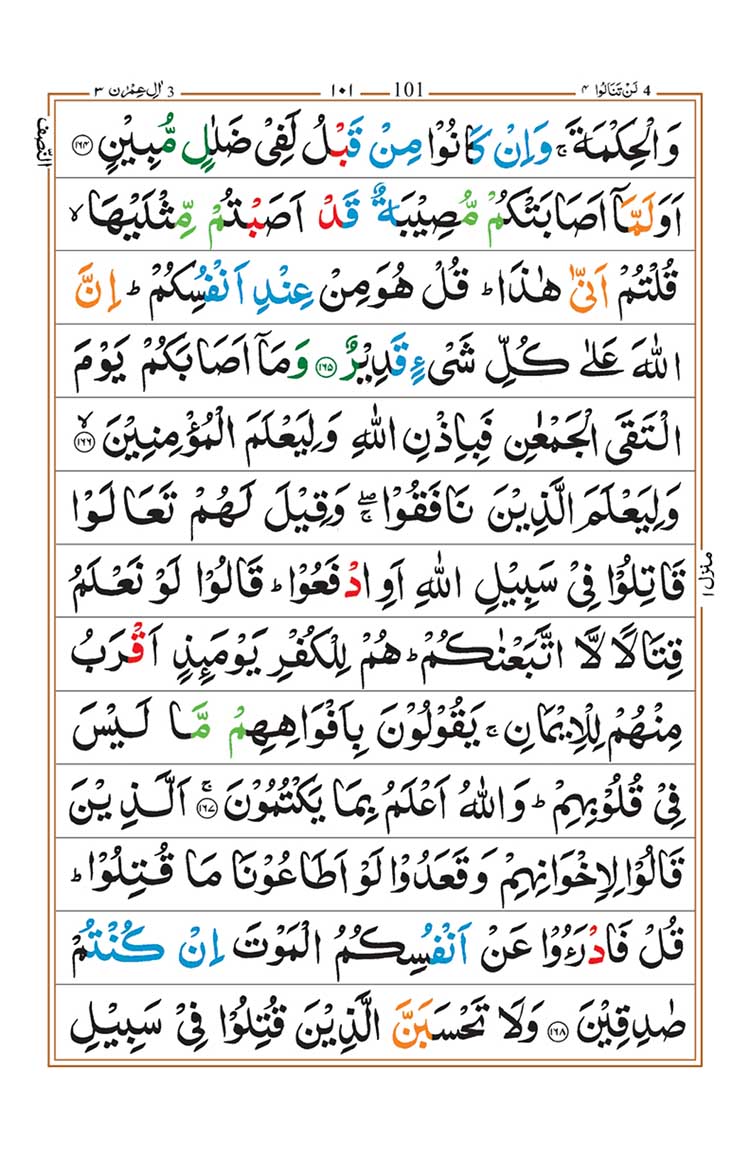 3 اٰلِ عِمْرٰن ٣ — 101 — ١٠١ — 4 لَنْ تَنَالُوا ٤
وَالْحِكْمَةَ ۚ وَاِنْ كَانُوْا مِنْ قَبْلُ لَفِیْ ضَلٰلٍ مُّبِیْنٍ ۝۱۶۴
اَوَلَمَّاۤ اَصَابَتْكُمْ مُّصِیْبَةٌ قَدْ اَصَبْتُمْ مِّثْلَیْهَا ۙ
قُلْتُمْ اَنّٰی هٰذَا ؕ قُلْ هُوَ مِنْ عِنْدِ اَنْفُسِكُمْ ؕ اِنَّ
اللّٰهَ عَلٰی كُلِّ شَیْءٍ قَدِیْرٌ ۝۱۶۵ وَمَاۤ اَصَابَكُمْ یَوْمَ
الْتَقَی الْجَمْعٰنِ فَبِاِذْنِ اللّٰهِ وَلِیَعْلَمَ الْمُؤْمِنِیْنَ ۝۱۶۶ ۙ
وَلِیَعْلَمَ الَّذِیْنَ نَافَقُوْا ۖۚ وَقِیْلَ لَهُمْ تَعَالَوْا
قَاتِلُوْا فِیْ سَبِیْلِ اللّٰهِ اَوِ ادْفَعُوْا ؕ قَالُوْا لَوْ نَعْلَمُ
قِتَالًا لَّا اتَّبَعْنٰكُمْ ؕ هُمْ لِلْكُفْرِ یَوْمَىِٕذٍ اَقْرَبُ
مِنْهُمْ لِلْاِیْمَانِ ۚ یَقُوْلُوْنَ بِاَفْوَاهِهِمْ مَّا لَیْسَ
فِیْ قُلُوْبِهِمْ ؕ وَاللّٰهُ اَعْلَمُ بِمَا یَكْتُمُوْنَ ۝۱۶۷ ۚ اَلَّذِیْنَ
قَالُوْا لِاِخْوَانِهِمْ وَقَعَدُوْا لَوْ اَطَاعُوْنَا مَا قُتِلُوْا ؕ
قُلْ فَادْرَءُوْا عَنْ اَنْفُسِكُمُ الْمَوْتَ اِنْ كُنْتُمْ
صٰدِقِیْنَ ۝۱۶۸ وَلَا تَحْسَبَنَّ الَّذِیْنَ قُتِلُوْا فِیْ سَبِیْلِ
النّصف
منزل ١